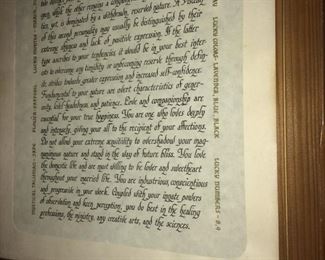 yon, while the other remains a
fies, yet, is dominated by a withdrawn, reserved nature. A Piscean
of this second personality may usually be distinguished by their
extreme shyness and lack of positive expression. If the latter
type ascribes to your tendencies, it would be in your best inter-
ests to overcome any timidity or unbecoming reserve through defin-
ite strides towards greater expression and increased self-confidence.
Fundamental to your nature are overt characteristics of gener-
osity, kind-heartedness, and patience. Love and companionship are
essential for your true happiness. You are one who loves deeply
and intensely, giving your all to the recipient of your affections.
Do not allow your extreme sensitivity to overshadow your mag-
nanimous nature and stand in the way of future bliss. You love
the domestic life and are most willing to be lover and sweetheart
throughout your married life. You are industrious, conscientious
and progressive in your work. Coupled with your innate powers
of observation and keen perception, you do best in the healing
professions, the ministry, any creative arts, and the sciences.
LUCKY COLORS - LAVENDER, BLUE, BLACK
LUCKY NUMBERS - 8, 9
MYSTICAL TALISMAN - JADE
FLOWER - DAFFODIL